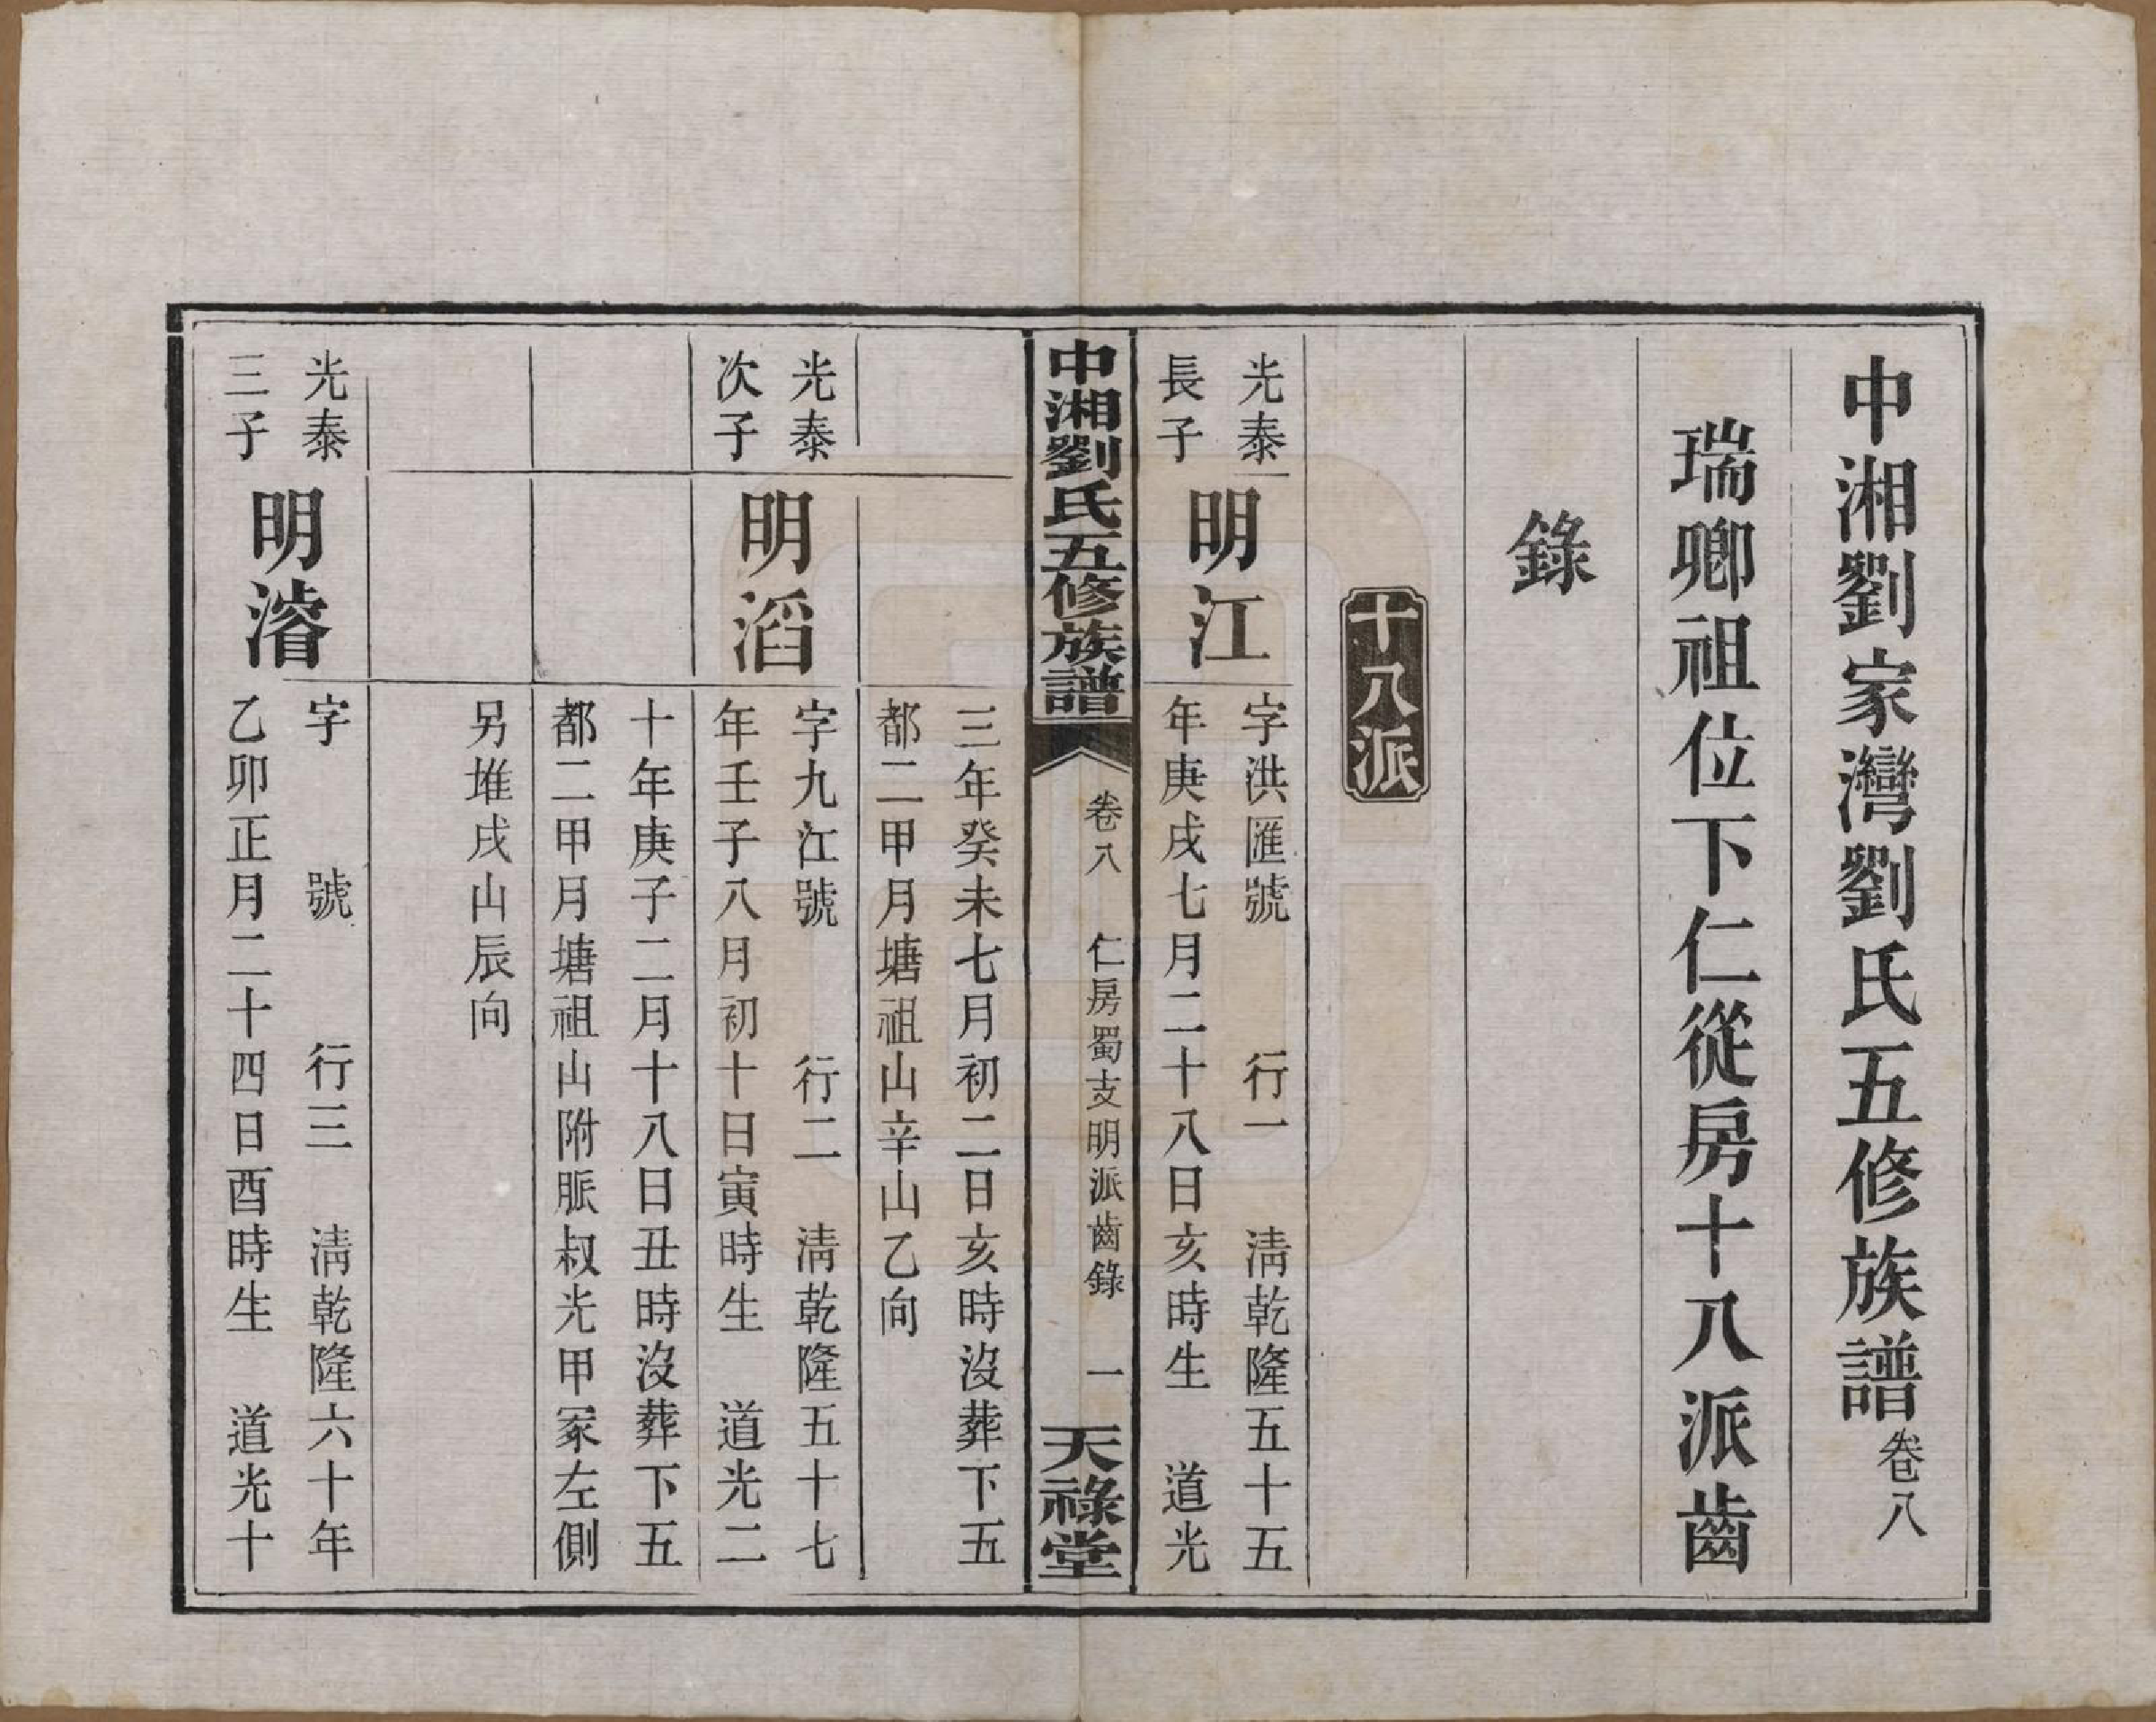 中湘劉家灣劉氏五修族譜卷八
瑞卿祖位下仁從房十八派齒
錄
十八派
光泰
長子
明江
字洪匯號　行一　清乾隆五十五
年庚戌七月二十八日亥時生　道光
中湘劉氏五修族譜
卷八　仁房蜀支明派齒錄　一
天祿堂
三年癸未七月初二日亥時沒葬下五
都二甲月塘祖山辛山乙向
光泰
次子
明滔
字九江號　行二　清乾隆五十七
年壬子八月初十日寅時生　道光二
十年庚子二月十八日丑時沒葬下五
都二甲月塘祖山附脈叔光甲冢左側
另堆戌山辰向
光泰
三子
明濬
字　號　行三　清乾隆六十年
乙卯正月二十四日酉時生　道光十